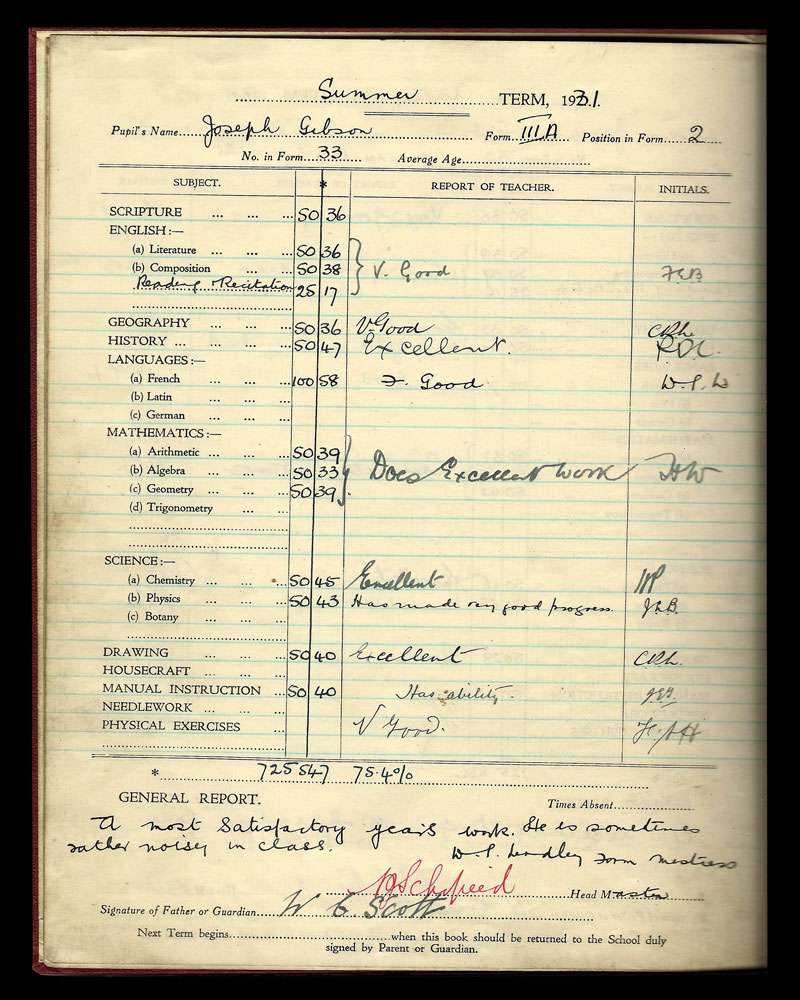 Summer TERM, 1931.
Pupil's Name Joseph Gibson Form III A Position in Form 2
No. in Form 33 Average Age
SUBJECT. * REPORT OF TEACHER. INITIALS.
SCRIPTURE ... ... ... 50 36
ENGLISH:—
(a) Literature ... ... ... 50 36
(b) Composition ... ... 50 38 V. Good
Reading & Recitation 25 17
GEOGRAPHY ... ... ... 50 36 V Good CRL.
HISTORY ... ... ... ... 50 47 Excellent.
LANGUAGES:—
(a) French ... ... ... 100 58 F. Good
(b) Latin ... ... ...
(c) German ... ... ...
MATHEMATICS:—
(a) Arithmetic ... ... ... 50 39
(b) Algebra ... ... ... 50 33 Does Excellent work
(c) Geometry ... ... ... 50 39
(d) Trigonometry ... ...
SCIENCE:—
(a) Chemistry ... ... ... 50 45 Excellent
(b) Physics ... ... ... 50 43 Has made very good progress.
(c) Botany ... ... ...
DRAWING ... ... ... 50 40 Excellent CRL.
HOUSECRAFT ... ... ...
MANUAL INSTRUCTION ... 50 40 Has ability.
NEEDLEWORK ... ... ...
PHYSICAL EXERCISES ... V Good.
* 725 547 75.4%
GENERAL REPORT. Times Absent
A most satisfactory year's work. He is sometimes
rather noisy in class. Form Mistress
Head Master
Signature of Father or Guardian W E Scott
Next Term begins when this book should be returned to the School duly
signed by Parent or Guardian.